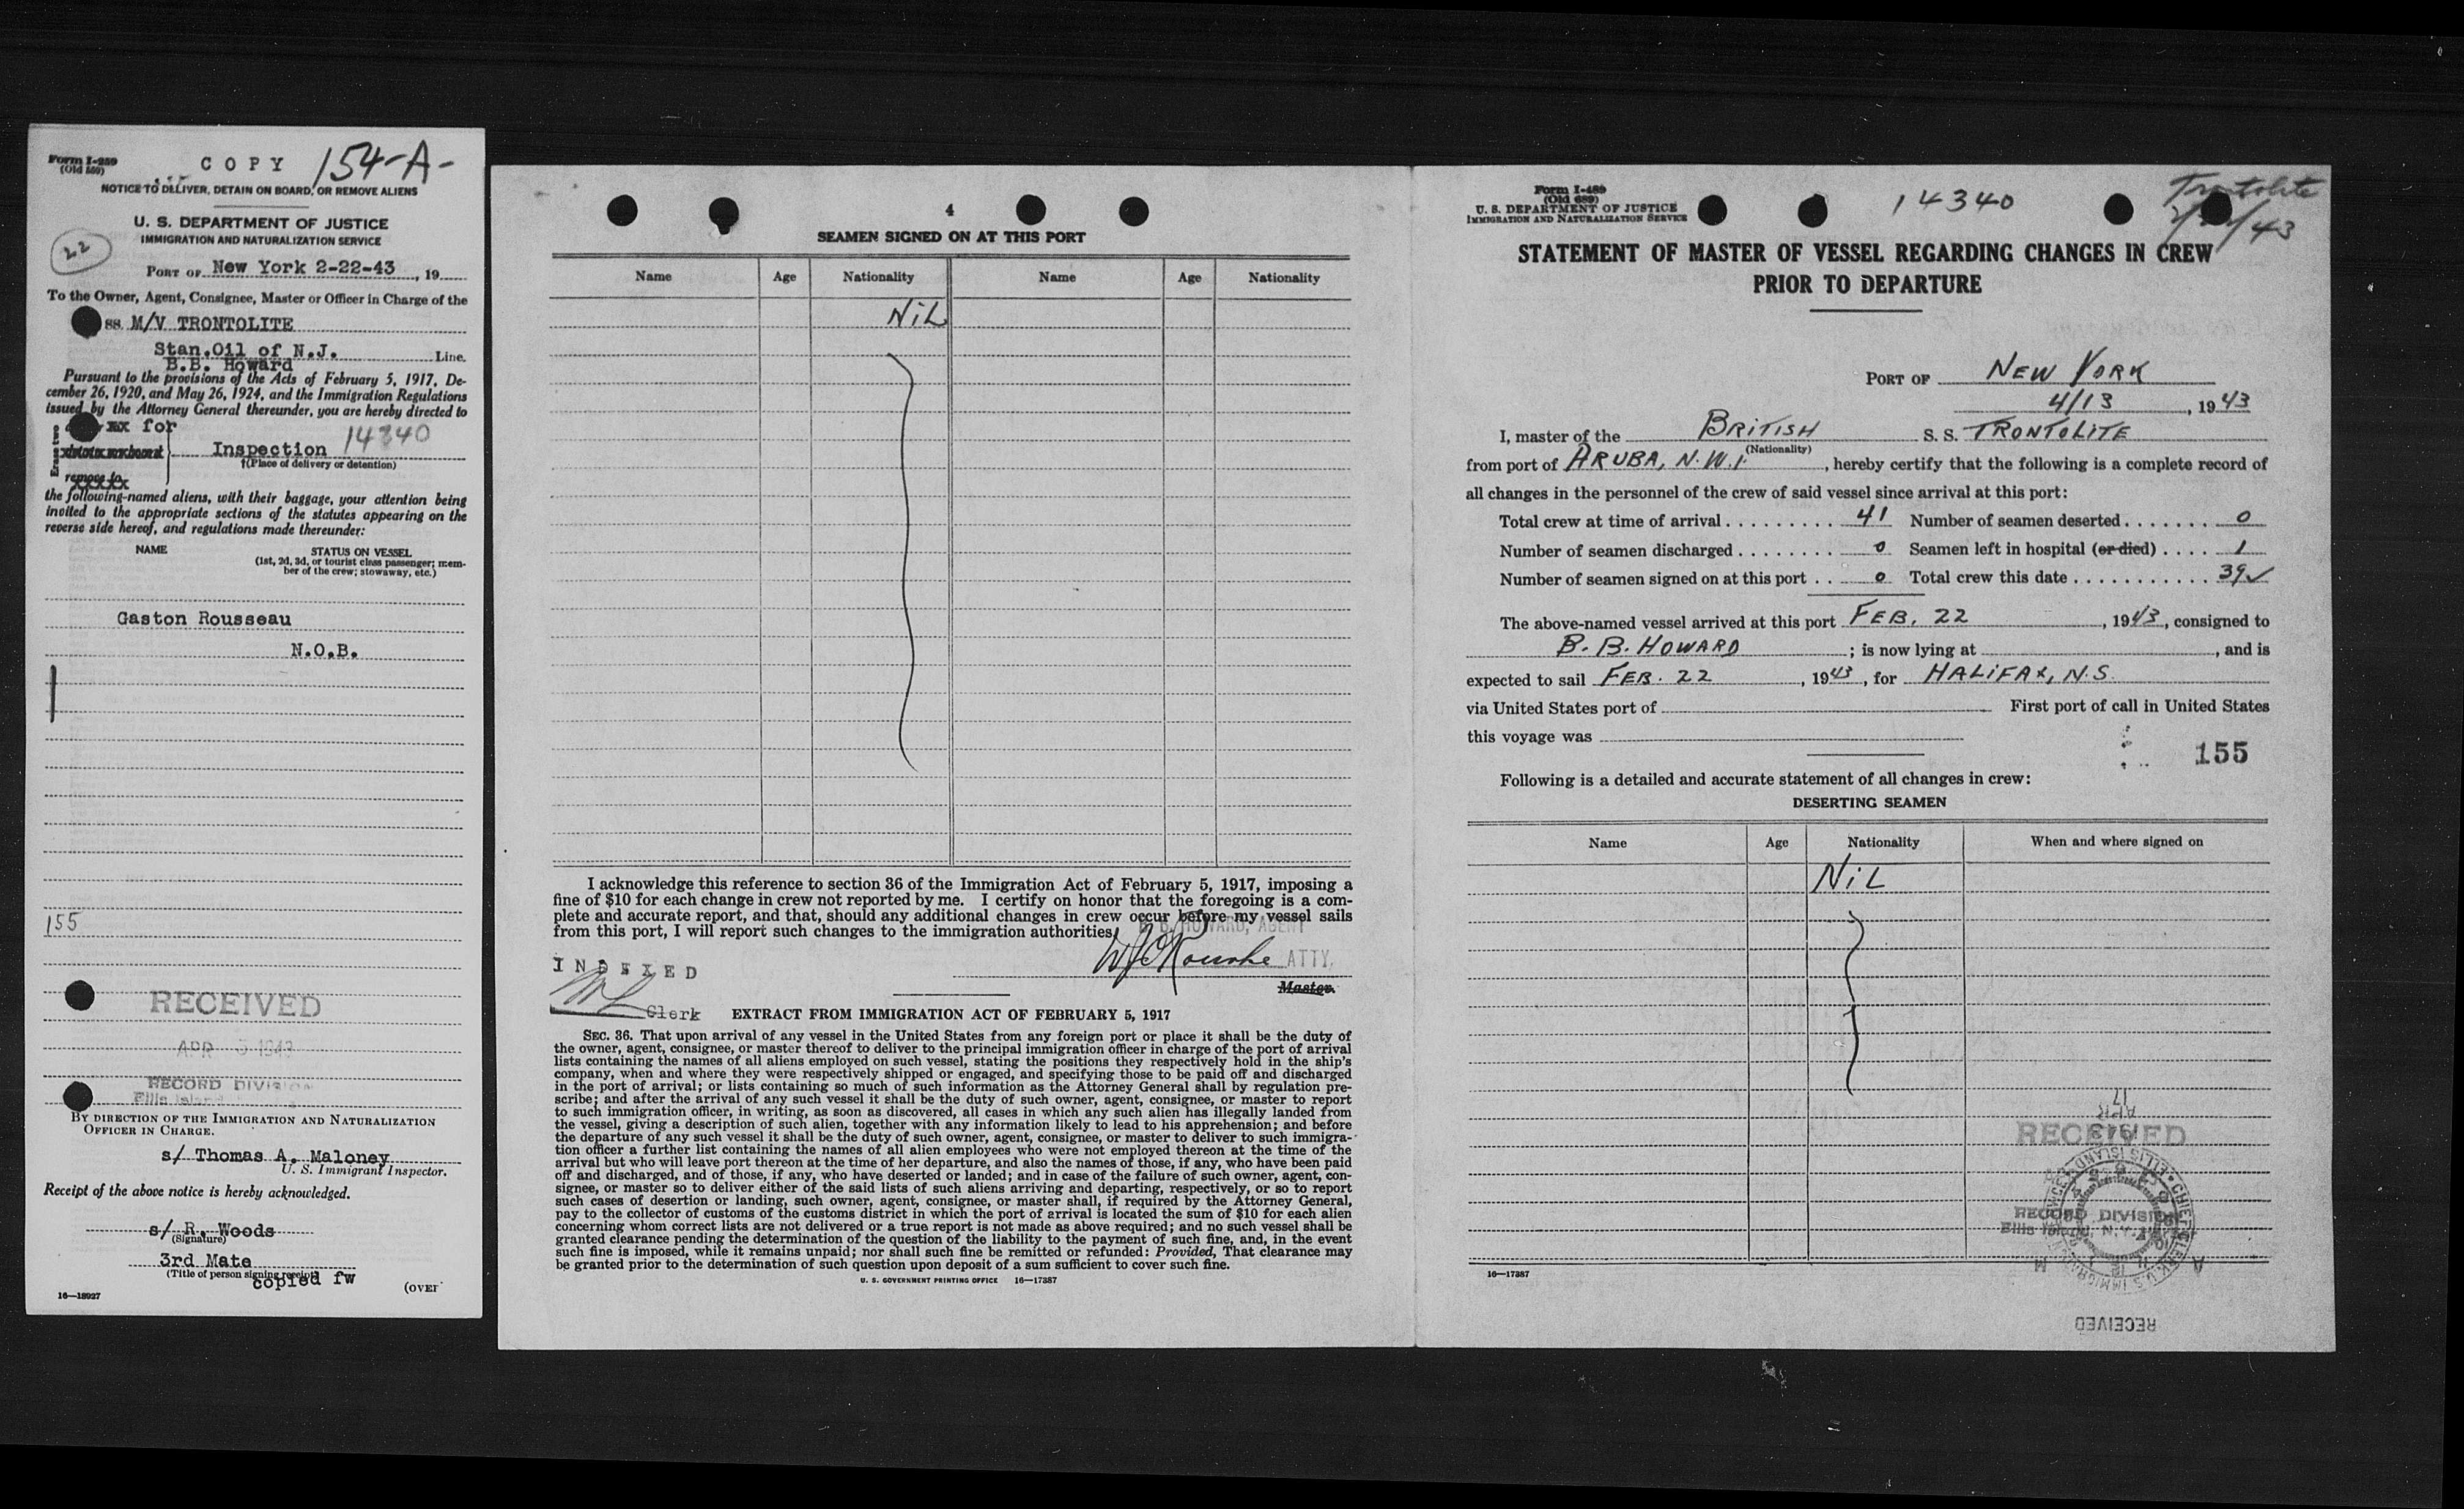 Form I-259
(Old 559)
COPY 154-A-
NOTICE TO DELIVER, DETAIN ON BOARD, OR REMOVE ALIENS
U. S. DEPARTMENT OF JUSTICE
IMMIGRATION AND NATURALIZATION SERVICE
22
PORT OF New York 2-22-43, 19
To the Owner, Agent, Consignee, Master or Officer in Charge of the
SS. M/V TRONTOLITE
Stan.Oil of N.J. Line.
B.B. Howard
Pursuant to the provisions of the Acts of February 5, 1917, De-
cember 26, 1920, and May 26, 1924, and the Immigration Regulations
issued by the Attorney General thereunder, you are hereby directed to
xx for
Erase two
Inspection 14340
†(Place of delivery or detention)
remove to
the following-named aliens, with their baggage, your attention being
invited to the appropriate sections of the statutes appearing on the
reverse side hereof, and regulations made thereunder:
NAME STATUS ON VESSEL
(1st, 2d, 3d, or tourist class passenger; mem-
ber of the crew; stowaway, etc.)
Gaston Rousseau
N.O.B.
155
RECEIVED
APR 1943
RECORD DIVISION
Ellis Island
BY DIRECTION OF THE IMMIGRATION AND NATURALIZATION
OFFICER IN CHARGE.
s/ Thomas A. Maloney
U. S. Immigrant Inspector.
Receipt of the above notice is hereby acknowledged.
s/ R. Woods
(Signature)
3rd Mate
(Title of person signing receipt)
copied fw
(OVER
16—18927
4
SEAMEN SIGNED ON AT THIS PORT
Name Age Nationality Name Age Nationality
NiL
I acknowledge this reference to section 36 of the Immigration Act of February 5, 1917, imposing a
fine of $10 for each change in crew not reported by me. I certify on honor that the foregoing is a com-
plete and accurate report, and that, should any additional changes in crew occur before my vessel sails
from this port, I will report such changes to the immigration authorities.
B. B. HOWARD, AGENT
INDEXED
WJO'Rourke ATTY.
Master.
Clerk
EXTRACT FROM IMMIGRATION ACT OF FEBRUARY 5, 1917
SEC. 36. That upon arrival of any vessel in the United States from any foreign port or place it shall be the duty of
the owner, agent, consignee, or master thereof to deliver to the principal immigration officer in charge of the port of arrival
lists containing the names of all aliens employed on such vessel, stating the positions they respectively hold in the ship's
company, when and where they were respectively shipped or engaged, and specifying those to be paid off and discharged
in the port of arrival; or lists containing so much of such information as the Attorney General shall by regulation pre-
scribe; and after the arrival of any such vessel it shall be the duty of such owner, agent, consignee, or master to report
to such immigration officer, in writing, as soon as discovered, all cases in which any such alien has illegally landed from
the vessel, giving a description of such alien, together with any information likely to lead to his apprehension; and before
the departure of any such vessel it shall be the duty of such owner, agent, consignee, or master to deliver to such immigra-
tion officer a further list containing the names of all alien employees who were not employed thereon at the time of the
arrival but who will leave port thereon at the time of her departure, and also the names of those, if any, who have been paid
off and discharged, and of those, if any, who have deserted or landed; and in case of the failure of such owner, agent, con-
signee, or master so to deliver either of the said lists of such aliens arriving and departing, respectively, or so to report
such cases of desertion or landing, such owner, agent, consignee, or master shall, if required by the Attorney General,
pay to the collector of customs of the customs district in which the port of arrival is located the sum of $10 for each alien
concerning whom correct lists are not delivered or a true report is not made as above required; and no such vessel shall be
granted clearance pending the determination of the question of the liability to the payment of such fine, and, in the event
such fine is imposed, while it remains unpaid; nor shall such fine be remitted or refunded: Provided, That clearance may
be granted prior to the determination of such question upon deposit of a sum sufficient to cover such fine.
U. S. GOVERNMENT PRINTING OFFICE 16—17387
Form I-489
(Old 689)
U. S. DEPARTMENT OF JUSTICE
IMMIGRATION AND NATURALIZATION SERVICE
14340
Trontolite
43
STATEMENT OF MASTER OF VESSEL REGARDING CHANGES IN CREW
PRIOR TO DEPARTURE
PORT OF NEW YORK
4/13, 1943
I, master of the BRITISH S. S. TRONTOLITE
(Nationality)
from port of ARUBA, N.W.I., hereby certify that the following is a complete record of
all changes in the personnel of the crew of said vessel since arrival at this port:
Total crew at time of arrival 41 Number of seamen deserted 0
Number of seamen discharged 0 Seamen left in hospital (or died) 1
Number of seamen signed on at this port 0 Total crew this date 39✓
The above-named vessel arrived at this port FEB. 22, 1943, consigned to
B. B. HOWARD; is now lying at , and is
expected to sail FEB. 22, 1943, for HALIFAX, N.S.
via United States port of First port of call in United States
this voyage was
155
Following is a detailed and accurate statement of all changes in crew:
DESERTING SEAMEN
Name Age Nationality When and where signed on
NiL
APR 17 1943
RECEIVED
RECORD DIVISION
Ellis Island, N.Y.
16—17387
RECEIVED